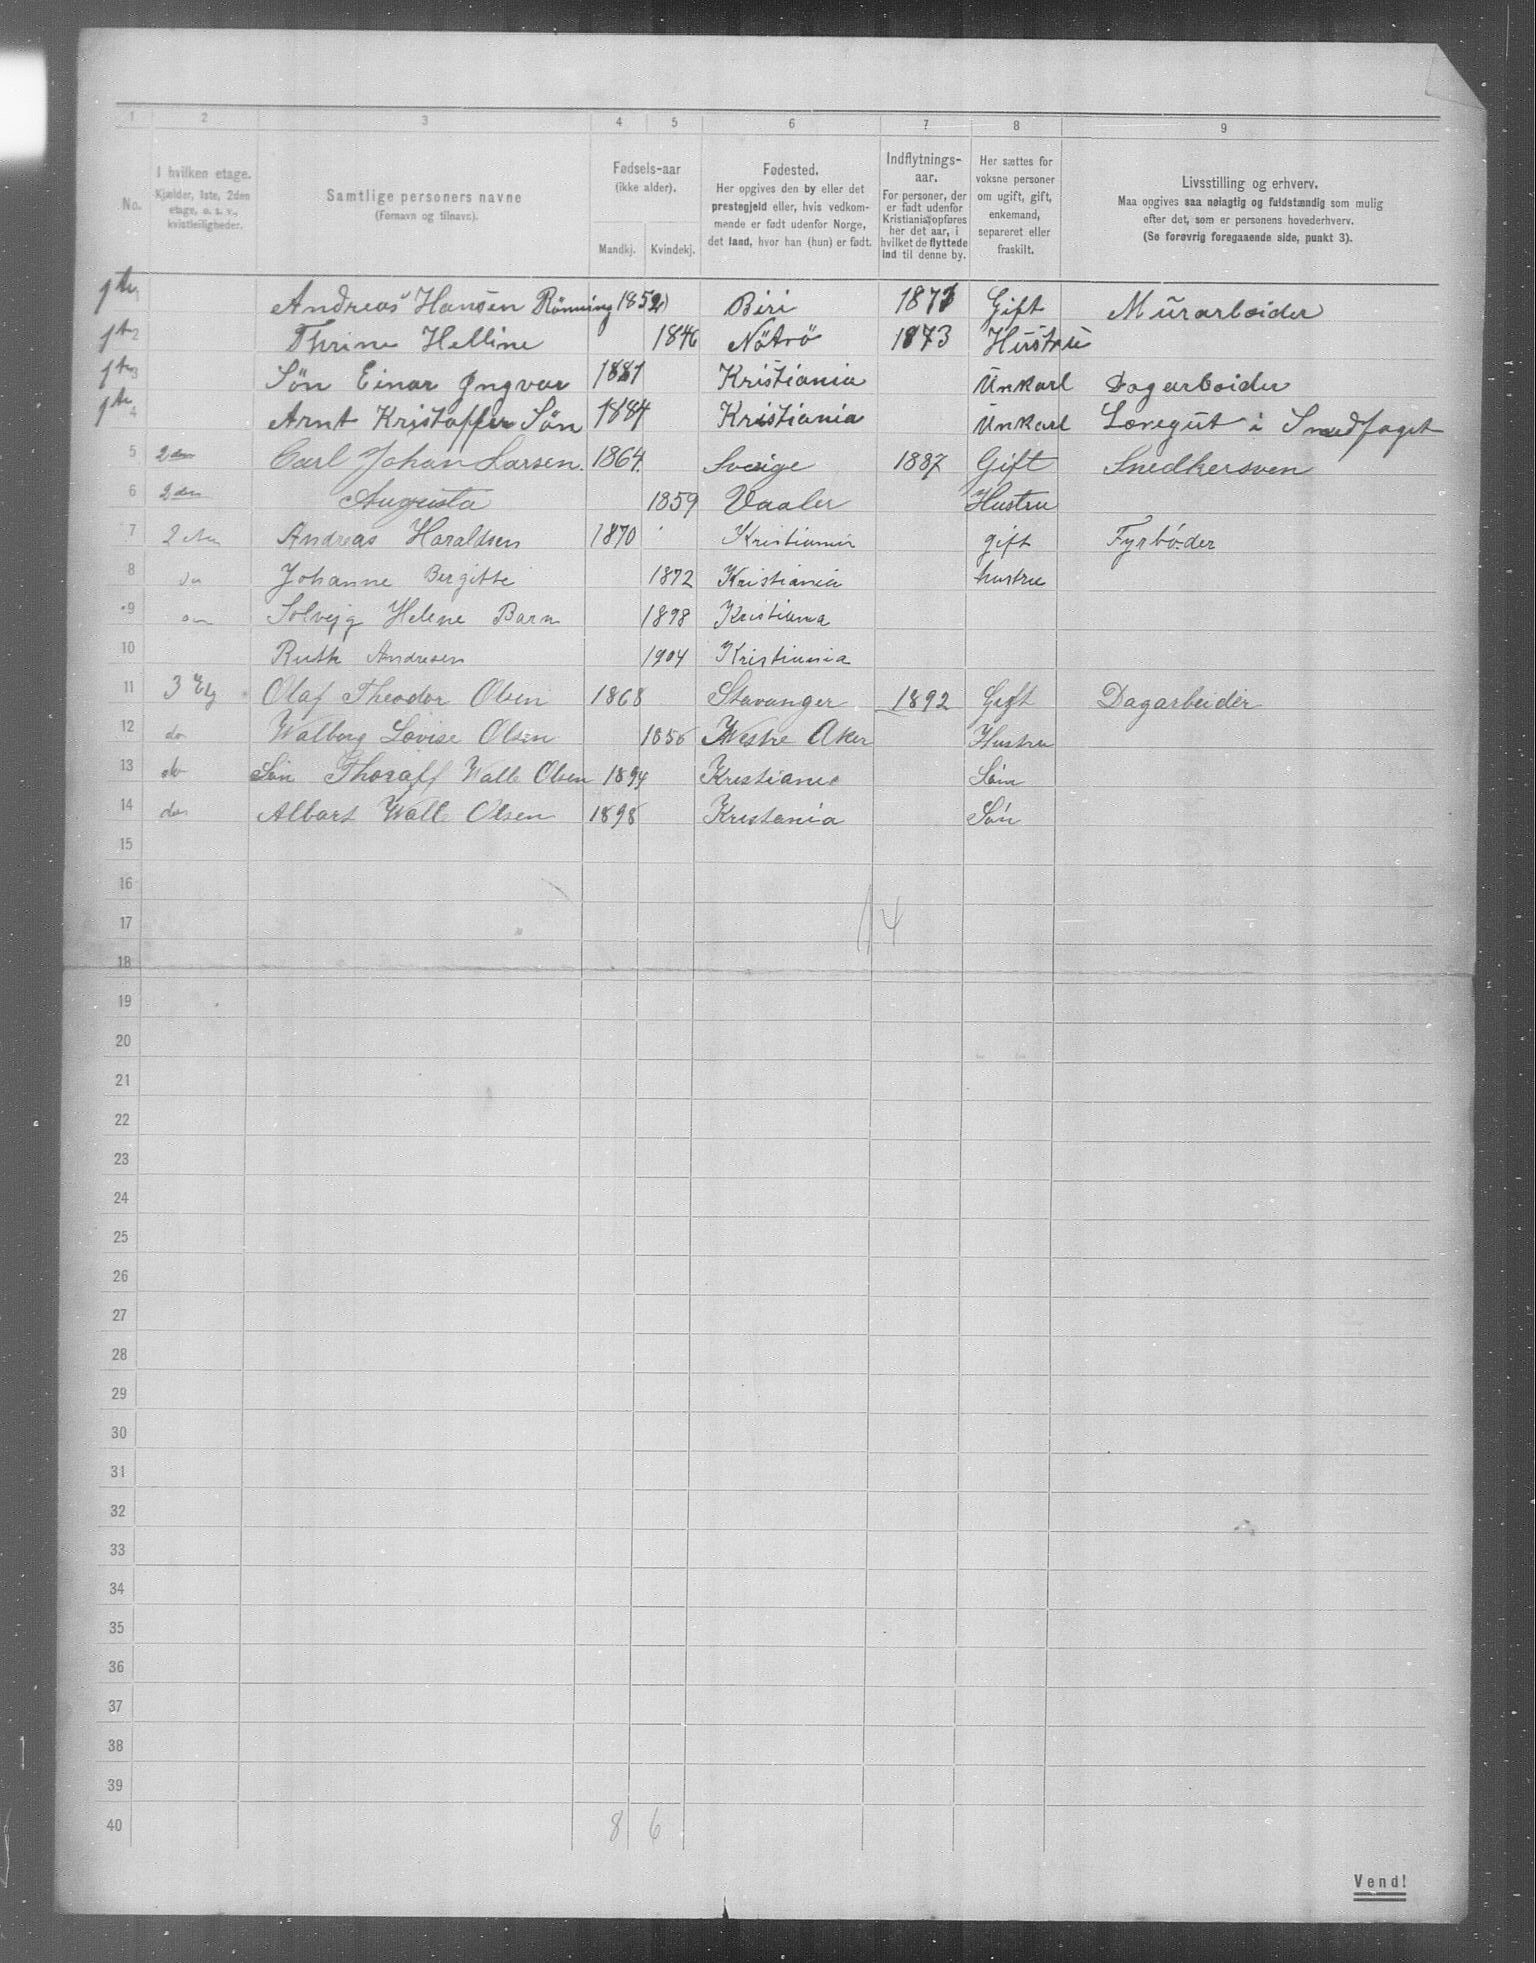 1 2 3 4 5 6 7 8 9
No.
I hvilken etage.
Kjælder, 1ste, 2den
etage, o. s. v.,
kvistleiligheder.
Samtlige personers navne
(Fornavn og tilnavn).
Fødsels-aar
(ikke alder).
Mandkj. Kvindekj.
Fødested.
Her opgives den by eller det
prestegjeld eller, hvis vedkom-
mende er født udenfor Norge,
det land, hvor han (hun) er født.
Indflytnings-
aar.
For personer, der
er født udenfor
Kristiania, opføres
her det aar, i
hvilket de flyttede
ind til denne by.
Her sættes for
voksne personer
om ugift, gift,
enkemand,
separeret eller
fraskilt.
Livsstilling og erhverv.
Maa opgives saa nøiagtig og fuldstændig som mulig
efter det, som er personens hovederhverv.
(Se forøvrig foregaaende side, punkt 3).
1 1te Andreas Hansen Rönning 1852 Biri 1871 Gift Mürarbeider
2 1te Thrine Helline 1846 Nötrö 1873 Hüstrü
3 1te Sön Einar Ingvar 1881 Kristiania Ünkarl Dagarbeider
4 1te Arnt Kristoffer Sön 1884 Kristiania Ünkarl Læregüt i Smedfaget
5 2den Carl Johan Larsen. 1864. Sverige 1887 Gift Snedkersven
6 2den Augusta 1859 Vaaler Hustru
7 2den Andreas Haraldsen 1870 Kristiania gift Fyrbøder
8 Johanne Bergitte 1872 Kristiania hustru
9 Solvejg Helene Barn 1898 Kristiania
10 Ruth Andresen 1904 Kristiania
11 3 Etg Olaf Theodor Olsen 1868 Stavanger 1892 Gift Dagarbeider
12 do Walborg Lovise Olsen 1856 Westre Aker Hustru
13 do Søn Thoralf Wall Olsen 1894 Kristiania Søn
14 do Albart Wall Olsen 1898 Kristania Søn
15
16
17 14
18
19
20
21
22
23
24
25
26
27
28
29
30
31
32
33
34
35
36
37
38
39
40 8 6
Vend!